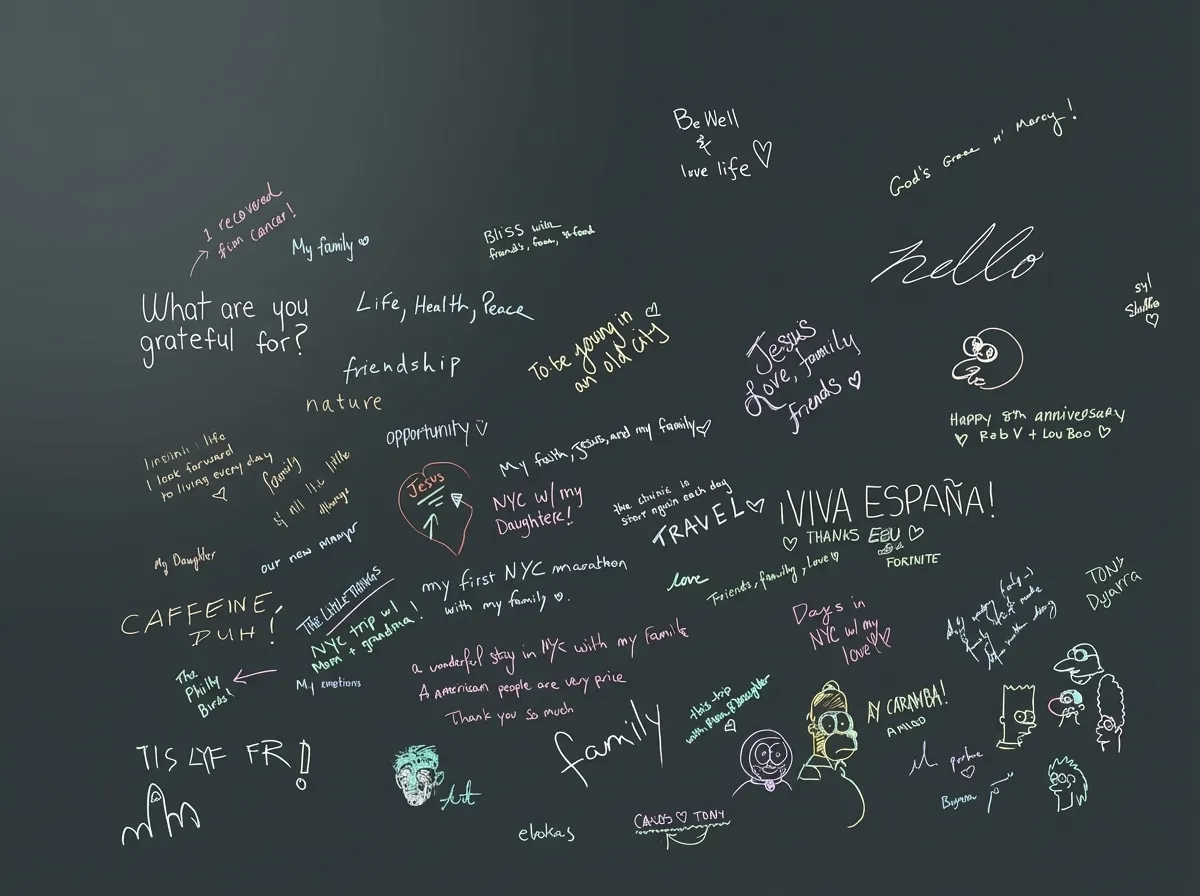 Be Well
&
love life
God's Grace n' Mercy!
I recovered
from cancer!
My family
Bliss with
friends, food
hello
What are you
grateful for?
Life, Health, Peace
syl
To be young in
an old city
Jesus
Love, family
friends
friendship
nature
opportunity
Happy 8th anniversary
Rob V + Lou Boo
My faith, Jesus, and my family
life
I look forward
to living every day
family
little
things
Jesus
NYC w/ my
Daughter!
start again each day
TRAVEL
¡VIVA ESPAÑA!
THANKS EEUU
FORTNITE
My Daughter
our new
my first NYC marathon
with my family
love
Friends, family, love
TONY
CAFFEINE
DUH!
THE LITTLE THINGS
NYC trip w/
Mom + grandma!
Days in
NYC w/ my
love!
a wonderful stay in NYC with my Family
A American people are very price
Thank you so much
The
Philly
Birds!
My emotions
this trip
with
Daughter
family
AY CARAMBA!
AMIGO
TIS LYF FR!
Art
elokas
CARLOS ♡ TONY